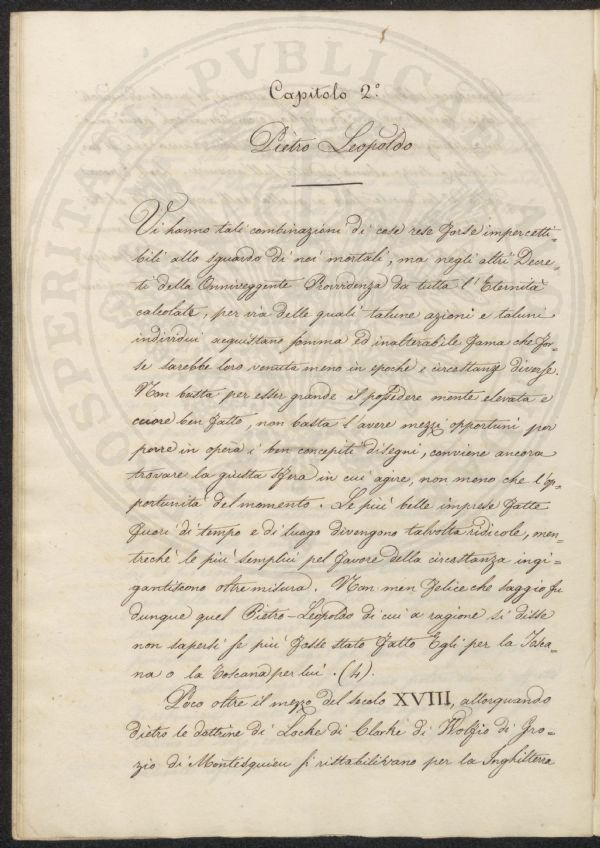 Capitolo 2.º
Pietro Leopoldo
Vi hanno tali combinazioni di cose rese forse impercetti=
bili allo sguardo di noi mortali, ma negli altri Decre=
ti della Onniveggente Provvidenza da tutta l'Eternità
calcolate, per via delle quali talune azioni e taluni
individui acquistano somma ed inalterabile fama che for=
se sarebbe loro venuta meno in epoche e circostanze diverse.
Non basta per esser grande il possedere mente elevata e
cuore ben fatto, non basta l'avere mezzi opportuni per
porre in opera i ben concepiti disegni, conviene ancora
trovare la giusta sfera in cui agire, non meno che l'op=
portunità del momento. Le più belle imprese fatte
fuori di tempo e di luogo divengono talvolta ridicole, men=
treché le più semplici pel favore della circostanza ingi=
gantiscono oltre misura. Non men felice che saggio fu
dunque quel Pietro-Leopoldo di cui a ragione si disse
non sapersi se più fosse stato fatto Egli per la Tosca=
na o la Toscana per lui. (4).
Poco oltre il mezzo del secolo XVIII, allorquando
dietro le dottrine di Loche di Clarke di Wolfio di Gro=
zio di Montesquieu si ristabilivano per la Inghilterra
PVBLICAE